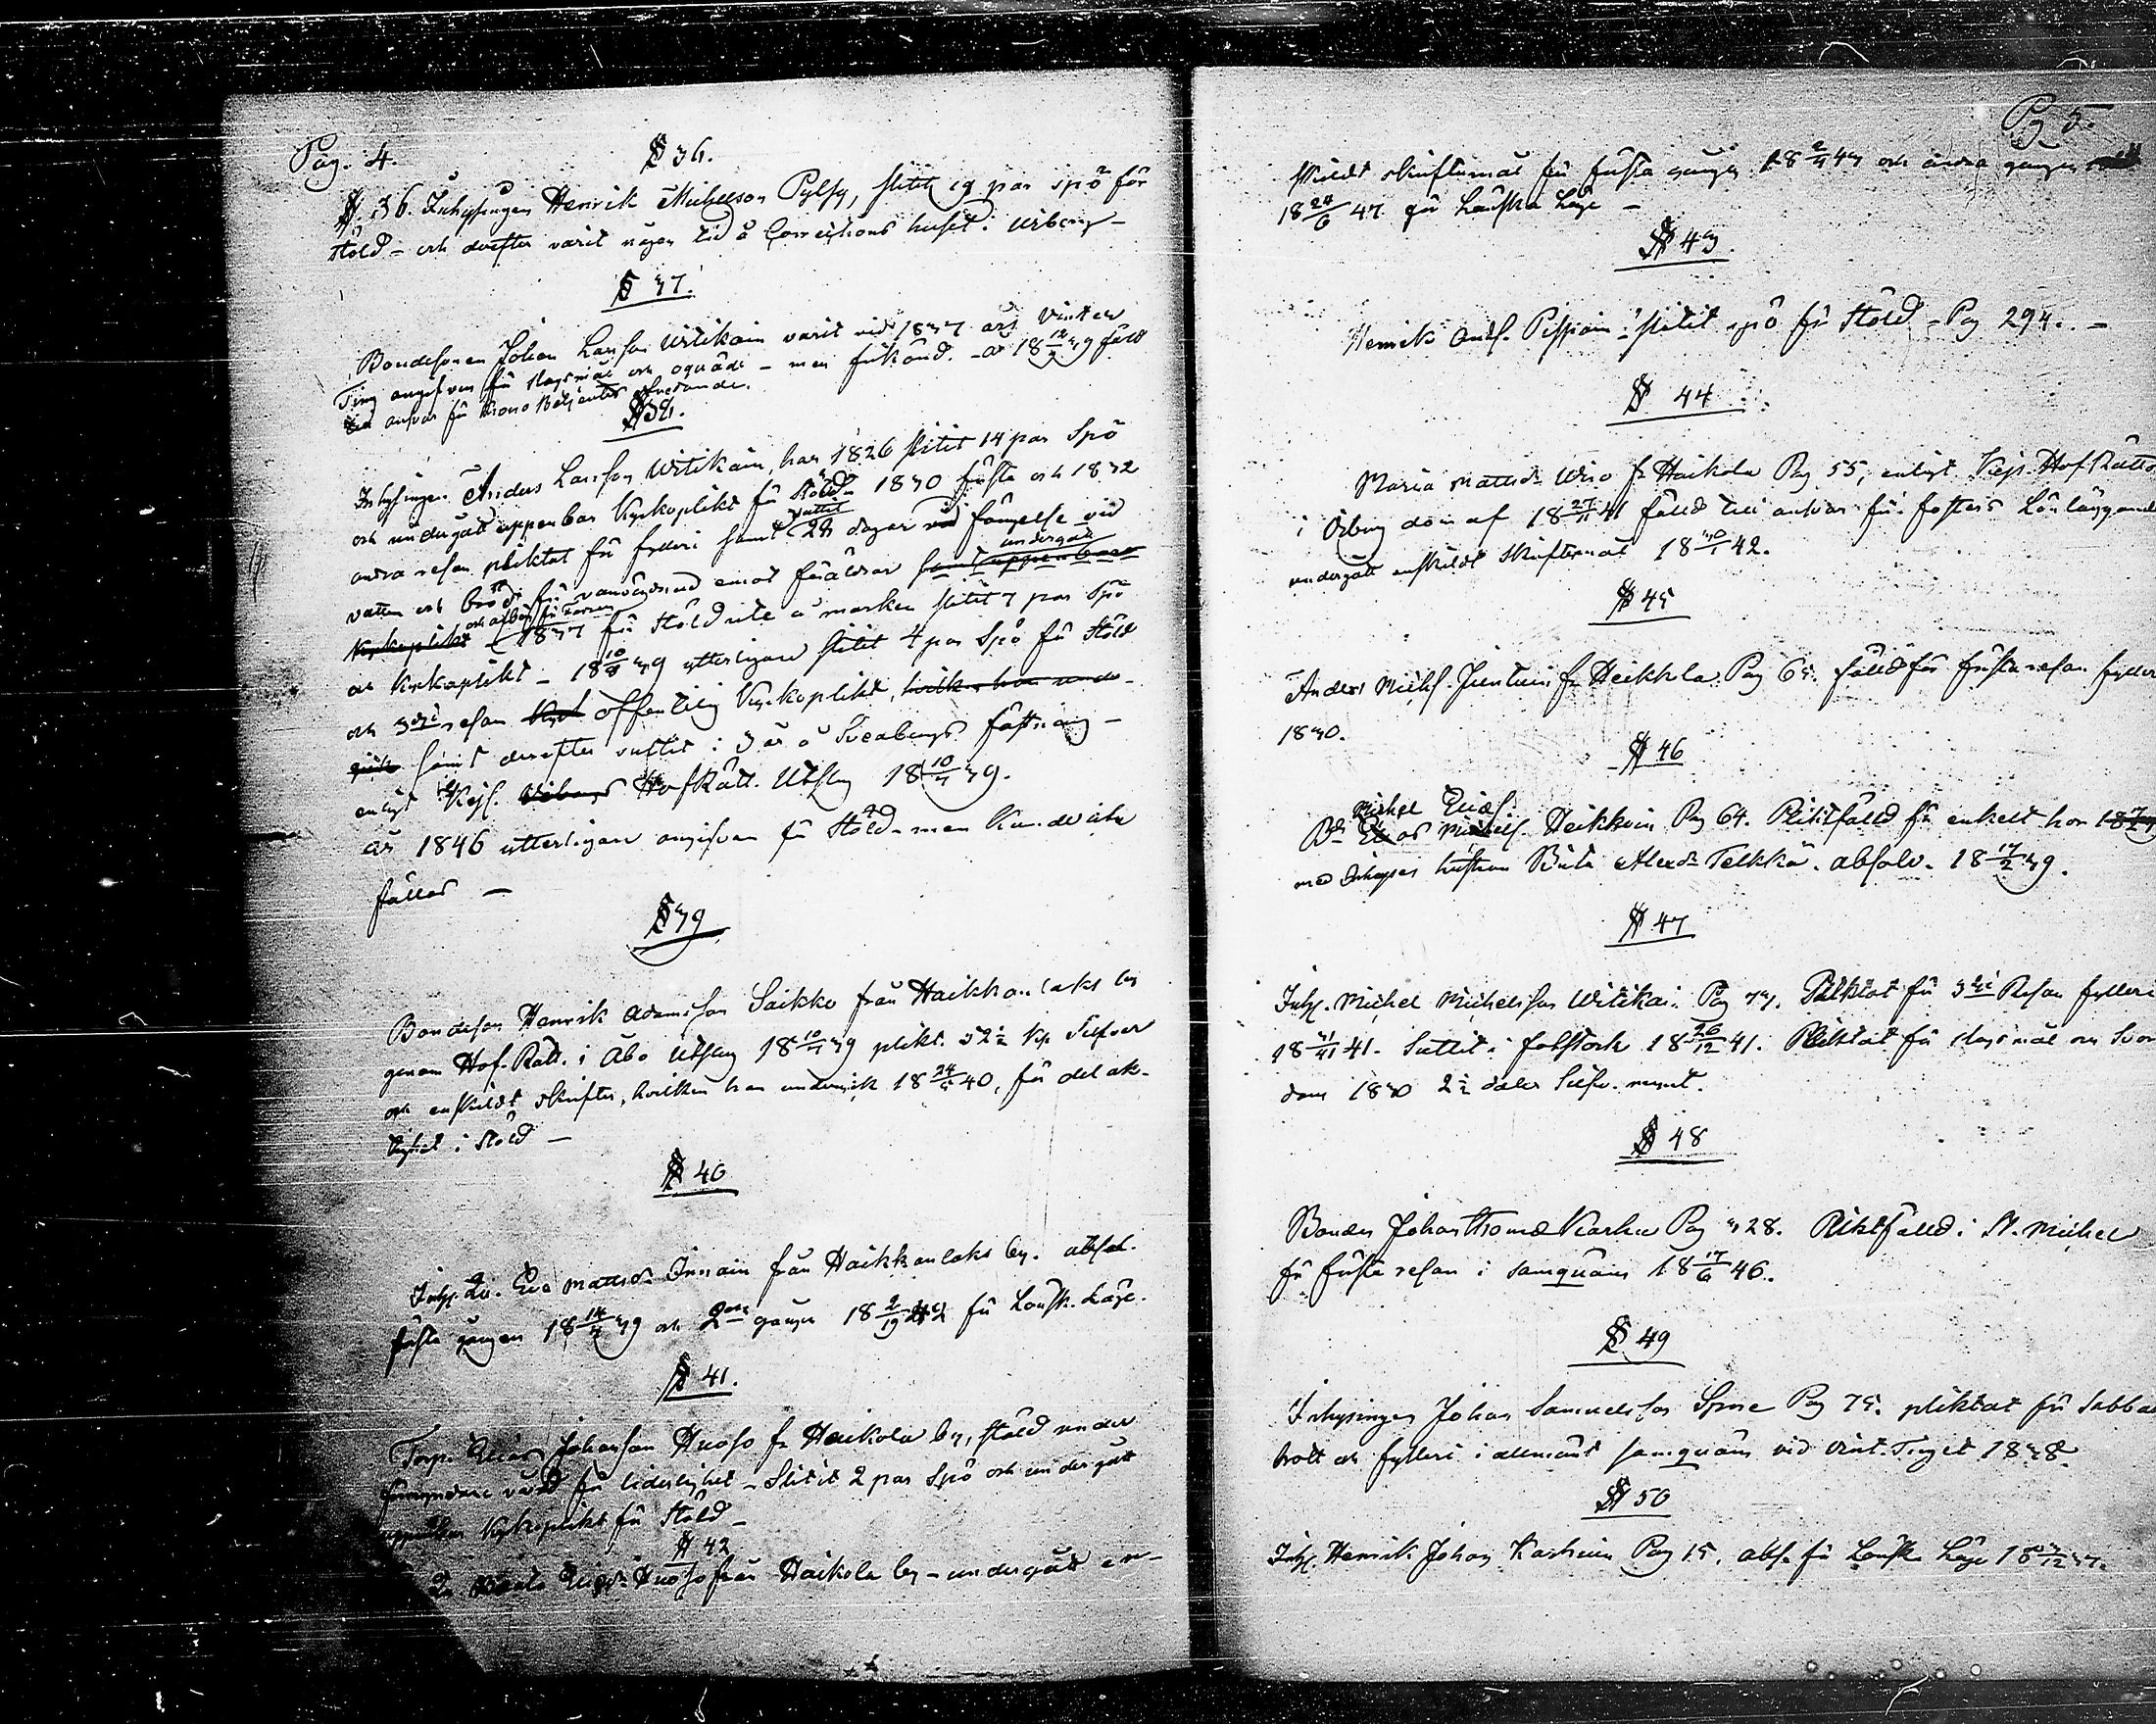 Pag. 4.
§ 36.
§. 36. Inhysingen Henrik Michelsson Pylsy, slitit 19 par spö för
stöld - och derefter varit någon tid å Corrections huset i Wiborg -
§ 37.
Bondesonen Johan Larsson Witikain varit vid 1837 års Vinter
Ting angifven för slagsmål och oqväde - men frikänd. - år 18 12/2 39 fäld
till ansvar för Krono Betjentes
§ 38.
Inhysingen Anders Larsson Witikain, har 1826 slitit 14 par Spö
och undergått uppenbar Kyrkoplikt för Stöld - 1830 första och 1832
andra resan pliktat för fylleri samt suttit 28 dagar fängelse vid
vatten och bröd för vanvördnad emot föräldrar samt uppenbara undergått
Kyrkoplikt - 1837 för Stöld ute å marken slitit 7 par Spö
och Kyrkoplikt - 18 10/8 39 ytterligare slitit 4 par Spö för Stöld
och 3dje resan offentlig Kyrkoplikt, hvilken han under-
gick samt derefter suttit i 3 år å Sveaborgs fästning -
enligt Kejs. Wiborgs HofRätt. Utslag 18 10/7 39.
år 1846 ytterligare angifven för Stöld - men Kunde icke
fällas -
§ 39
Bondeson Henrik Adamsson Saikko från Haikkanlaks by
genom Hof. Rätt. i Åbo Utslag 18 10/7 39 plikt. 52 1/2 Kp Silfver
och enskildt skrifter, hvilken han undergick 18 24/5 40, för delak-
tighet i Stöld -
§ 40
Inhys. Qv. Eva Mattsdr Innain från Haikkanlaks by. absol.
första gången 18 14/4 39 och 2dra gången 18 för Lönsk. Läge.
§ 41.
Torp. Elias Johansson Huoso fr Haikola by, stäld under
förmyndare vård för liderlighet - Slitit 2 par Spö och undergått
uppenbar Kyrkoplikt för Stöld -
§ 42
Huoso från Haikola by - undergått en-
Pg 5.
skildt skriftermål för första gången 18 2/4 43 och andra gången
18 24/6 47 för Lönska Läge -
§ 43.
Henrik And. Pippoin: slitit spö för Stöld - Pag 294. -
§ 44
Maria Mattsdr Wiro fr Haikola Pag 55, enligt Kejs. Hof Rätts
i Wiborg dom af 18 27/11 41 fälld till ansvar för fosters Lönläggande
undergått enskildt Skriftermål 18 30/1 42.
§ 45
Anders Michels. Juntuin fr Heikkola Pag 65. fälld för första resan fylleri
1830.
§ 46
Michel Eliæs.
Bd Michels. Heikkein Pag 64. Pliktfälld för enkelt hor
med Inhyses hustrun Brita Alexdr Telkkä. absolv. 18 17/2 39.
§ 47
Inhys. Michel Michelsson Witikain Pag 73. Pliktat för 3dje Resan fylleri
18 41. Suttit i fotstock 18 26/12 41. Pliktat för slagsmål och Svor-
dom 1830 2 1/2 daler Silfv. mynt.
§ 48
Bonden Johan Thomæ Karhu Pag 328. Pliktfälld i St. Michel
för första resan i samqväm 18 17/6 46.
§ 49
Inhysingen Johan Samuelsson Spore Pag 75. pliktat för Sabbats
brott och fylleri i allmänt samqväm vid Vint. Tinget 1838.
§ 50
Inhys. Henrik Johans. Karhuin Pag 15. abs. för Lönska Läge 18 37.